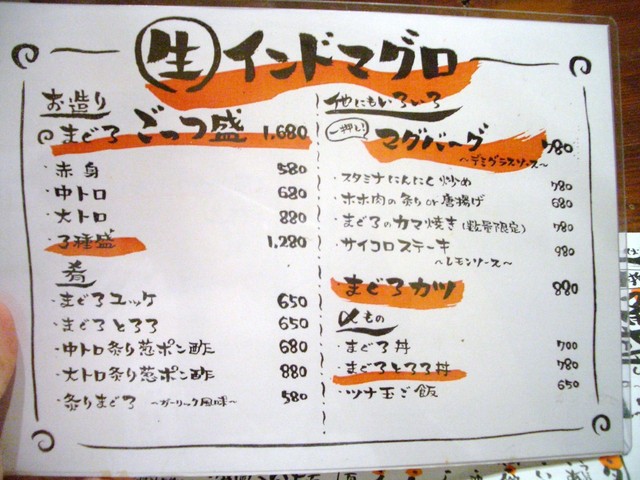 生 インドマグロ
お造り
まぐろ ごっつ盛 1,680
・赤身 580
・中トロ 680
・大トロ 880
・3種盛 1,280
肴
・まぐろユッケ 650
・まぐろとろろ 650
・中トロ炙り葱ポン酢 680
・大トロ炙り葱ポン酢 880
・炙りまぐろ 〜ガーリック風味〜 580
他にもいろいろ
一押し! マグバーグ 780
〜デミグラスソース〜
・スタミナにんにく炒め 780
・ホホ肉の炙りor唐揚げ 680
・まぐろのカマ焼き(数量限定) 780
・サイコロステーキ 980
〜レモンソース〜
・まぐろカツ 880
〆もの
・まぐろ丼 700
・まぐろとろろ丼 780
・ツナ玉ご飯 650